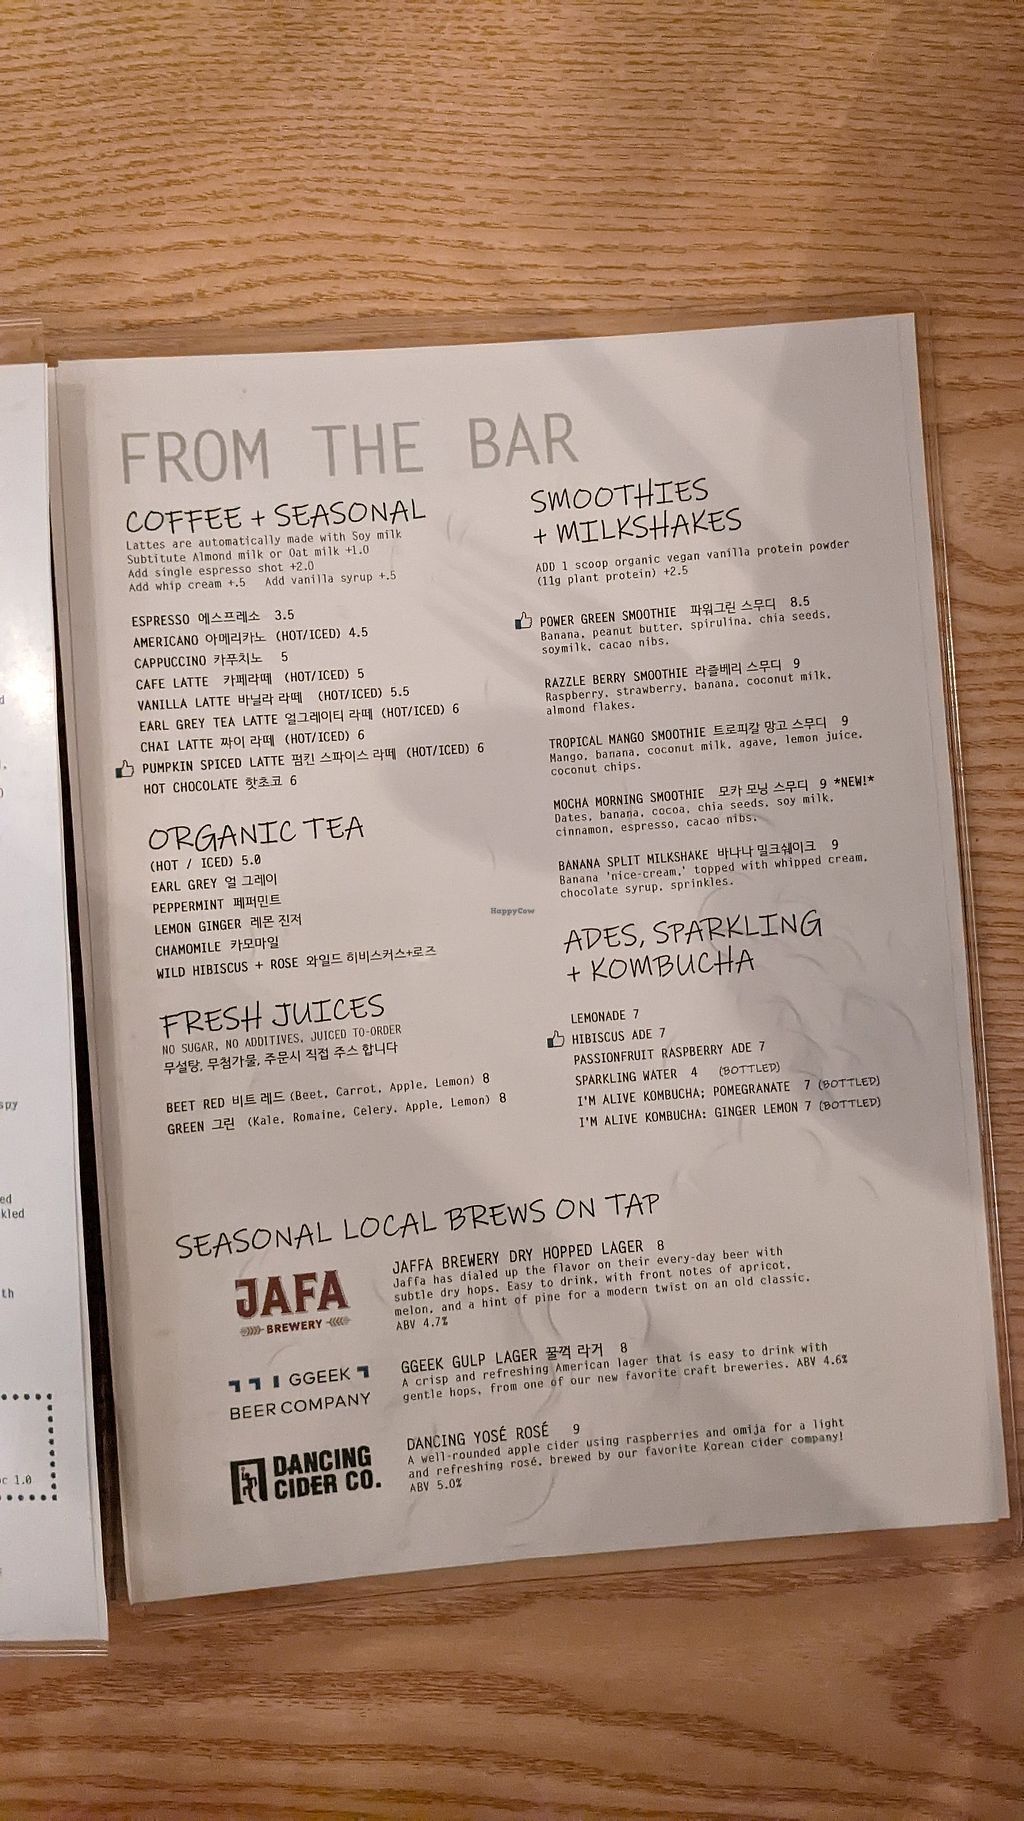 FROM THE BAR
COFFEE + SEASONAL
Lattes are automatically made with Soy milk
Subtitute Almond milk or Oat milk +1.0
Add single espresso shot +2.0
Add whip cream +.5 Add vanilla syrup +.5
ESPRESSO 에스프레소 3.5
AMERICANO 아메리카노 (HOT/ICED) 4.5
CAPPUCCINO 카푸치노 5
CAFE LATTE 카페라떼 (HOT/ICED) 5
VANILLA LATTE 바닐라 라떼 (HOT/ICED) 5.5
EARL GREY TEA LATTE 얼그레이티 라떼 (HOT/ICED) 6
CHAI LATTE 짜이 라떼 (HOT/ICED) 6
PUMPKIN SPICED LATTE 펌킨 스파이스 라떼 (HOT/ICED) 6
HOT CHOCOLATE 핫초코 6
ORGANIC TEA
(HOT / ICED) 5.0
EARL GREY 얼 그레이
PEPPERMINT 페퍼민트
LEMON GINGER 레몬 진저
CHAMOMILE 카모마일
WILD HIBISCUS + ROSE 와일드 히비스커스+로즈
FRESH JUICES
NO SUGAR, NO ADDITIVES, JUICED TO-ORDER
무설탕, 무첨가물, 주문시 직접 주스 합니다
BEET RED 비트 레드 (Beet, Carrot, Apple, Lemon) 8
GREEN 그린 (Kale, Romaine, Celery, Apple, Lemon) 8
SMOOTHIES
+ MILKSHAKES
ADD 1 scoop organic vegan vanilla protein powder
(11g plant protein) +2.5
POWER GREEN SMOOTHIE 파워그린 스무디 8.5
Banana, peanut butter, spirulina, chia seeds,
soymilk, cacao nibs.
RAZZLE BERRY SMOOTHIE 라즐베리 스무디 9
Raspberry, strawberry, banana, coconut milk,
almond flakes.
TROPICAL MANGO SMOOTHIE 트로피칼 망고 스무디 9
Mango, banana, coconut milk, agave, lemon juice,
coconut chips.
MOCHA MORNING SMOOTHIE 모카 모닝 스무디 9 *NEW!*
Dates, banana, cocoa, chia seeds, soy milk,
cinnamon, espresso, cacao nibs.
BANANA SPLIT MILKSHAKE 바나나 밀크쉐이크 9
Banana 'nice-cream,' topped with whipped cream,
chocolate syrup, sprinkles.
HappyCow
ADES, SPARKLING
+ KOMBUCHA
LEMONADE 7
HIBISCUS ADE 7
PASSIONFRUIT RASPBERRY ADE 7
SPARKLING WATER 4 (BOTTLED)
I'M ALIVE KOMBUCHA; POMEGRANATE 7 (BOTTLED)
I'M ALIVE KOMBUCHA: GINGER LEMON 7 (BOTTLED)
SEASONAL LOCAL BREWS ON TAP
JAFA
BREWERY
JAFFA BREWERY DRY HOPPED LAGER 8
Jaffa has dialed up the flavor on their every-day beer with
subtle dry hops. Easy to drink, with front notes of apricot,
melon, and a hint of pine for a modern twist on an old classic.
ABV 4.7%
GGEEK
BEER COMPANY
GGEEK GULP LAGER 꿀꺽 라거 8
A crisp and refreshing American lager that is easy to drink with
gentle hops, from one of our new favorite craft breweries. ABV 4.6%
DANCING
CIDER CO.
DANCING YOSÉ ROSÉ 9
A well-rounded apple cider using raspberries and omija for a light
and refreshing rosé, brewed by our favorite Korean cider company!
ABV 5.0%
spy
ed
kled
th
c 1.0